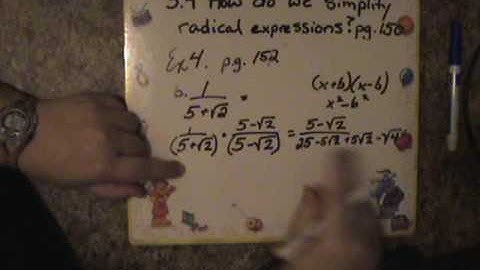 5.4 How do we simplify
radical expressions? pg.150
Ex4. pg. 152
b. 1/(5+√2) =
(x+b)(x-b)
x²-b²
(1/(5+√2)) • (5-√2)/(5-√2) = (5-√2)/(25-5√2+5√2-√4)